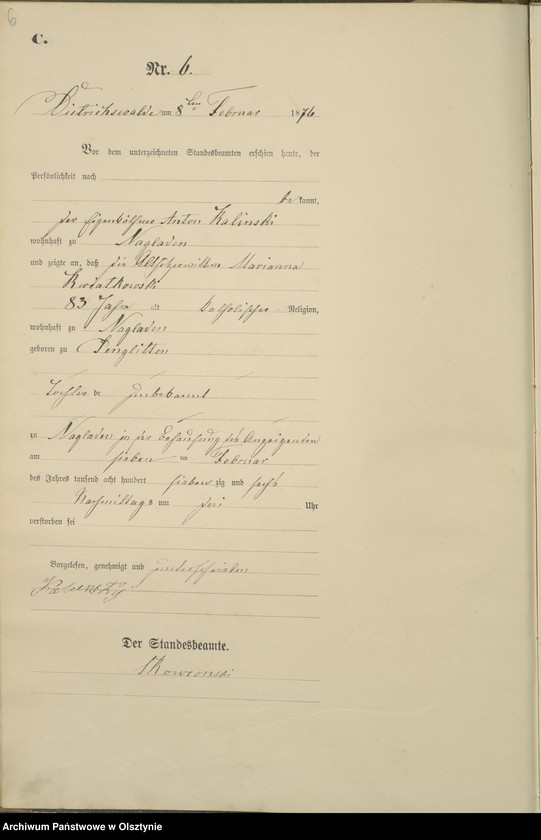 6
C.
Nr. 6.
Dietrichswalde am 8ten Februar 1876
Vor dem unterzeichneten Standesbeamten erschien heute, der
Persönlichkeit nach
bekannt,
der Eigenkäthner Anton Kalinski
wohnhaft zu Nagladen
und zeigte an, daß die Altsitzerwittwe Marianna
Kwiatkowski
83 Jahr alt katholischer Religion,
wohnhaft zu Nagladen
geboren zu Penglitten
Tochter de unbekannt
zu Nagladen in der Behausung des Anzeigenden
am sieben ten Februar
des Jahres tausend acht hundert siebenzig und sechs
Nachmittags um drei Uhr
verstorben sei
Vorgelesen, genehmigt und unterschrieben
Der Standesbeamte.
Skowronski
Archiwum Państwowe w Olsztynie